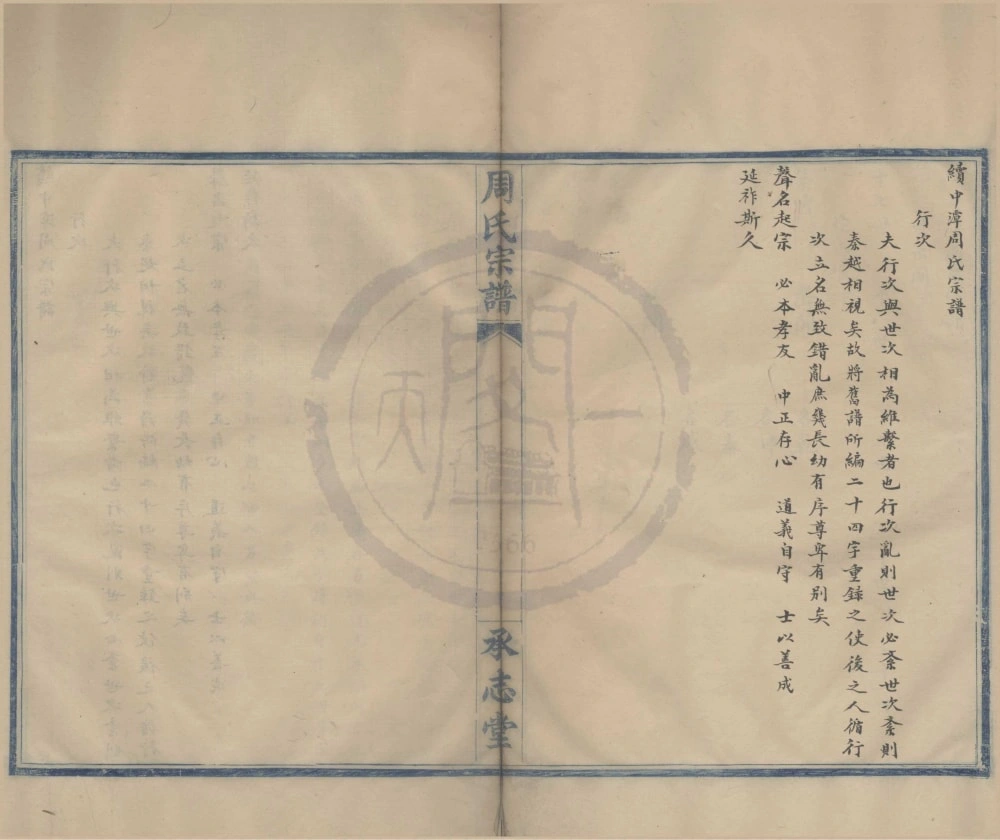 續中潭周氏宗譜
行次
夫行次與世次相為維繫者也行次亂則世次必紊世次紊則
秦越相視矣故將舊譜所編二十四字重錄之使後之人循行
次立名無致錯亂庶幾長幼有序尊卑有別矣
聲名起宗 必本孝友 中正存心 道義自守 士以善成
延祚斯久
周氏宗譜
承志堂